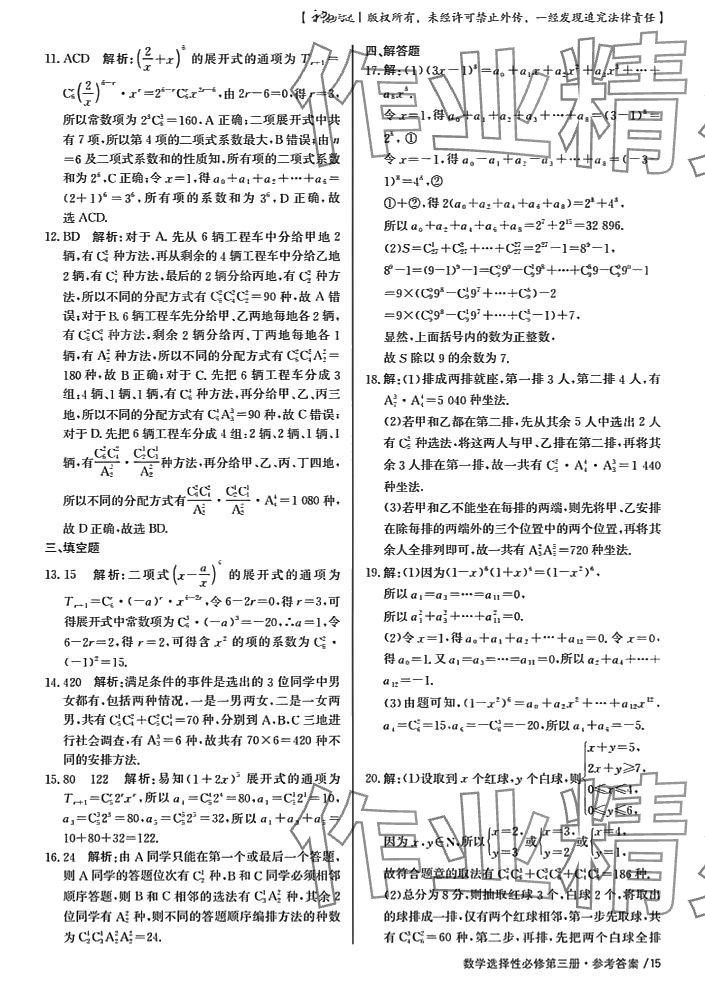 【 | 版权所有，未经许可禁止外传，一经发现追究法律责任】
11. ACD　解析:(2/x+x)^6 的展开式的通项为 T_{r+1}=
C_6^r(2/x)^{6-r}·x^r=2^{6-r}C_6^r x^{2r-6},由 2r-6=0,得 r=3,
所以常数项为 2^3C_6^3=160,A 正确;二项展开式中共
有 7 项,所以第 4 项的二项式系数最大,B 错误;由 n
=6 及二项式系数和的性质知,所有项的二项式系数
和为 2^6,C 正确;令 x=1,得 a_0+a_1+a_2+…+a_6=
(2+1)^6=3^6,所有项的系数和为 3^6,D 正确,故
选 ACD.
12. BD　解析:对于 A. 先从 6 辆工程车中分给甲地 2
辆,有 C_6^2 种方法,再从剩余的 4 辆工程车中分给乙地
2 辆,有 C_4^2 种方法,最后的 2 辆分给丙地,有 C_2^2 种方
法,所以不同的分配方式有 C_6^2C_4^2C_2^2=90 种,故 A 错
误;对于 B. 6 辆工程车先分给甲、乙两地每地各 2 辆,
有 C_6^2C_4^2 种方法,剩余 2 辆分给丙、丁两地每地各 1
辆,有 A_2^2 种方法,所以不同的分配方式有 C_6^2C_4^2A_2^2=
180 种,故 B 正确;对于 C. 先把 6 辆工程车分成 3
组:4 辆、1 辆、1 辆,有 C_6^4 种方法,再分给甲、乙、丙三
地,所以不同的分配方式有 C_6^4A_3^3=90 种,故 C 错误;
对于 D. 先把 6 辆工程车分成 4 组:2 辆、2 辆、1 辆、1
辆,有 C_6^2C_4^2/A_2^2·C_2^1C_1^1/A_2^2 种方法,再分给甲、乙、丙、丁四地,
所以不同的分配方式有 C_6^2C_4^2/A_2^2·C_2^1C_1^1/A_2^2·A_4^4=1 080 种,
故 D 正确,故选 BD.
三、填空题
13. 15　解析:二项式(x-a/x)^6 的展开式的通项为
T_{r+1}=C_6^r·(-a)^r·x^{6-2r},令 6-2r=0,得 r=3,可
得展开式中常数项为 C_6^3·(-a)^3=-20,∴a=1,令
6-2r=2,得 r=2,可得含 x^2 的项的系数为 C_6^2·
(-1)^2=15.
14. 420　解析:满足条件的事件是选出的 3 位同学中男
女都有,包括两种情况,一是一男两女,二是一女两
男,共有 C_5^1C_4^2+C_5^2C_4^1=70 种,分别到 A,B,C 三地进
行社会调查,有 A_3^3=6 种,故共有 70×6=420 种不
同的安排方法.
15. 80　122　解析:易知(1+2x)^5 展开式的通项为
T_{r+1}=C_5^r2^rx^r,所以 a_4=C_5^42^4=80,a_1=C_5^12^1=10,
a_3=C_5^32^3=80,a_5=C_5^52^5=32,所以 a_1+a_3+a_5=
10+80+32=122.
16. 24　解析:由 A 同学只能在第一个或最后一个答题,
则 A 同学的答题位次有 C_2^1 种,B 和 C 同学必须相邻
顺序答题,则 B 和 C 相邻的选法有 C_3^1A_2^2 种,其余 2
位同学有 A_2^2 种,则不同的答题顺序编排方法的种数
为 C_2^1C_3^1A_2^2A_2^2=24.
四、解答题
17. 解:(1)(3x-1)^8=a_0+a_1x+a_2x^2+a_3x^3+…+
a_8x^8.
令 x=1,得 a_0+a_1+a_2+a_3+…+a_8=(3-1)^8=
2^8,①
令 x=-1,得 a_0-a_1+a_2-a_3+…+a_8=(-3-
1)^8=4^8,②
①+②,得 2(a_0+a_2+a_4+a_6+a_8)=2^8+4^8,
所以 a_0+a_2+a_4+a_6+a_8=2^7+2^{15}=32 896.
(2)S=C_{27}^1+C_{27}^2+…+C_{27}^{27}=2^{27}-1=8^9-1,
8^9-1=(9-1)^9-1=C_9^09^9-C_9^19^8+…+C_9^89-C_9^99^0-1
=9×(C_9^09^8-C_9^19^7+…+C_9^8)-2
=9×(C_9^09^8-C_9^19^7+…+C_9^8-1)+7,
显然,上面括号内的数为正整数,
故 S 除以 9 的余数为 7.
18. 解:(1)排成两排就座,第一排 3 人,第二排 4 人,有
A_7^3·A_4^4=5 040 种坐法.
(2)若甲和乙都在第二排,先从其余 5 人中选出 2 人
有 C_5^2 种选法,将这两人与甲、乙排在第二排,再将其
余 3 人排在第一排,故一共有 C_5^2·A_4^4·A_3^3=1 440
种坐法.
(3)若甲和乙不能坐在每排的两端,则先将甲、乙安排
在除每排的两端外的三个位置中的两个位置,再将其
余人全排列即可,故一共有 A_3^2A_5^5=720 种坐法.
19. 解:(1)因为(1-x)^6(1+x)^6=(1-x^2)^6,
所以 a_1=a_3=…=a_{11}=0,
所以 a_1^2+a_3^2+…+a_{11}^2=0.
(2)令 x=1,得 a_0+a_1+a_2+…+a_{12}=0. 令 x=0,
得 a_0=1. 又 a_1=a_3=…=a_{11}=0,所以 a_2+a_4+…+
a_{12}=-1.
(3)由题可知,(1-x^2)^6=a_0+a_2x^2+…+a_{12}x^{12},
a_4=C_6^2=15,a_6=-C_6^3=-20,所以 a_4+a_6=-5.
20. 解:(1)设取到 x 个红球,y 个白球,则{x+y=5,
2x+y≥7,
0≤x≤4,
0≤y≤6,
因为 x,y∈N,所以{x=2,y=3 或{x=3,y=2 或{x=4,y=1,
故符合题意的取法有 C_4^2C_6^3+C_4^3C_6^2+C_4^4C_6^1=186 种.
(2)总分为 8 分,则抽取红球 3 个,白球 2 个,将取出
的球排成一排,仅有两个红球相邻,第一步先取球,共
有 C_4^3C_6^2=60 种,第二步,再排,先把两个白球全排
数学选择性必修第三册·参考答案/15
作业精
作业精